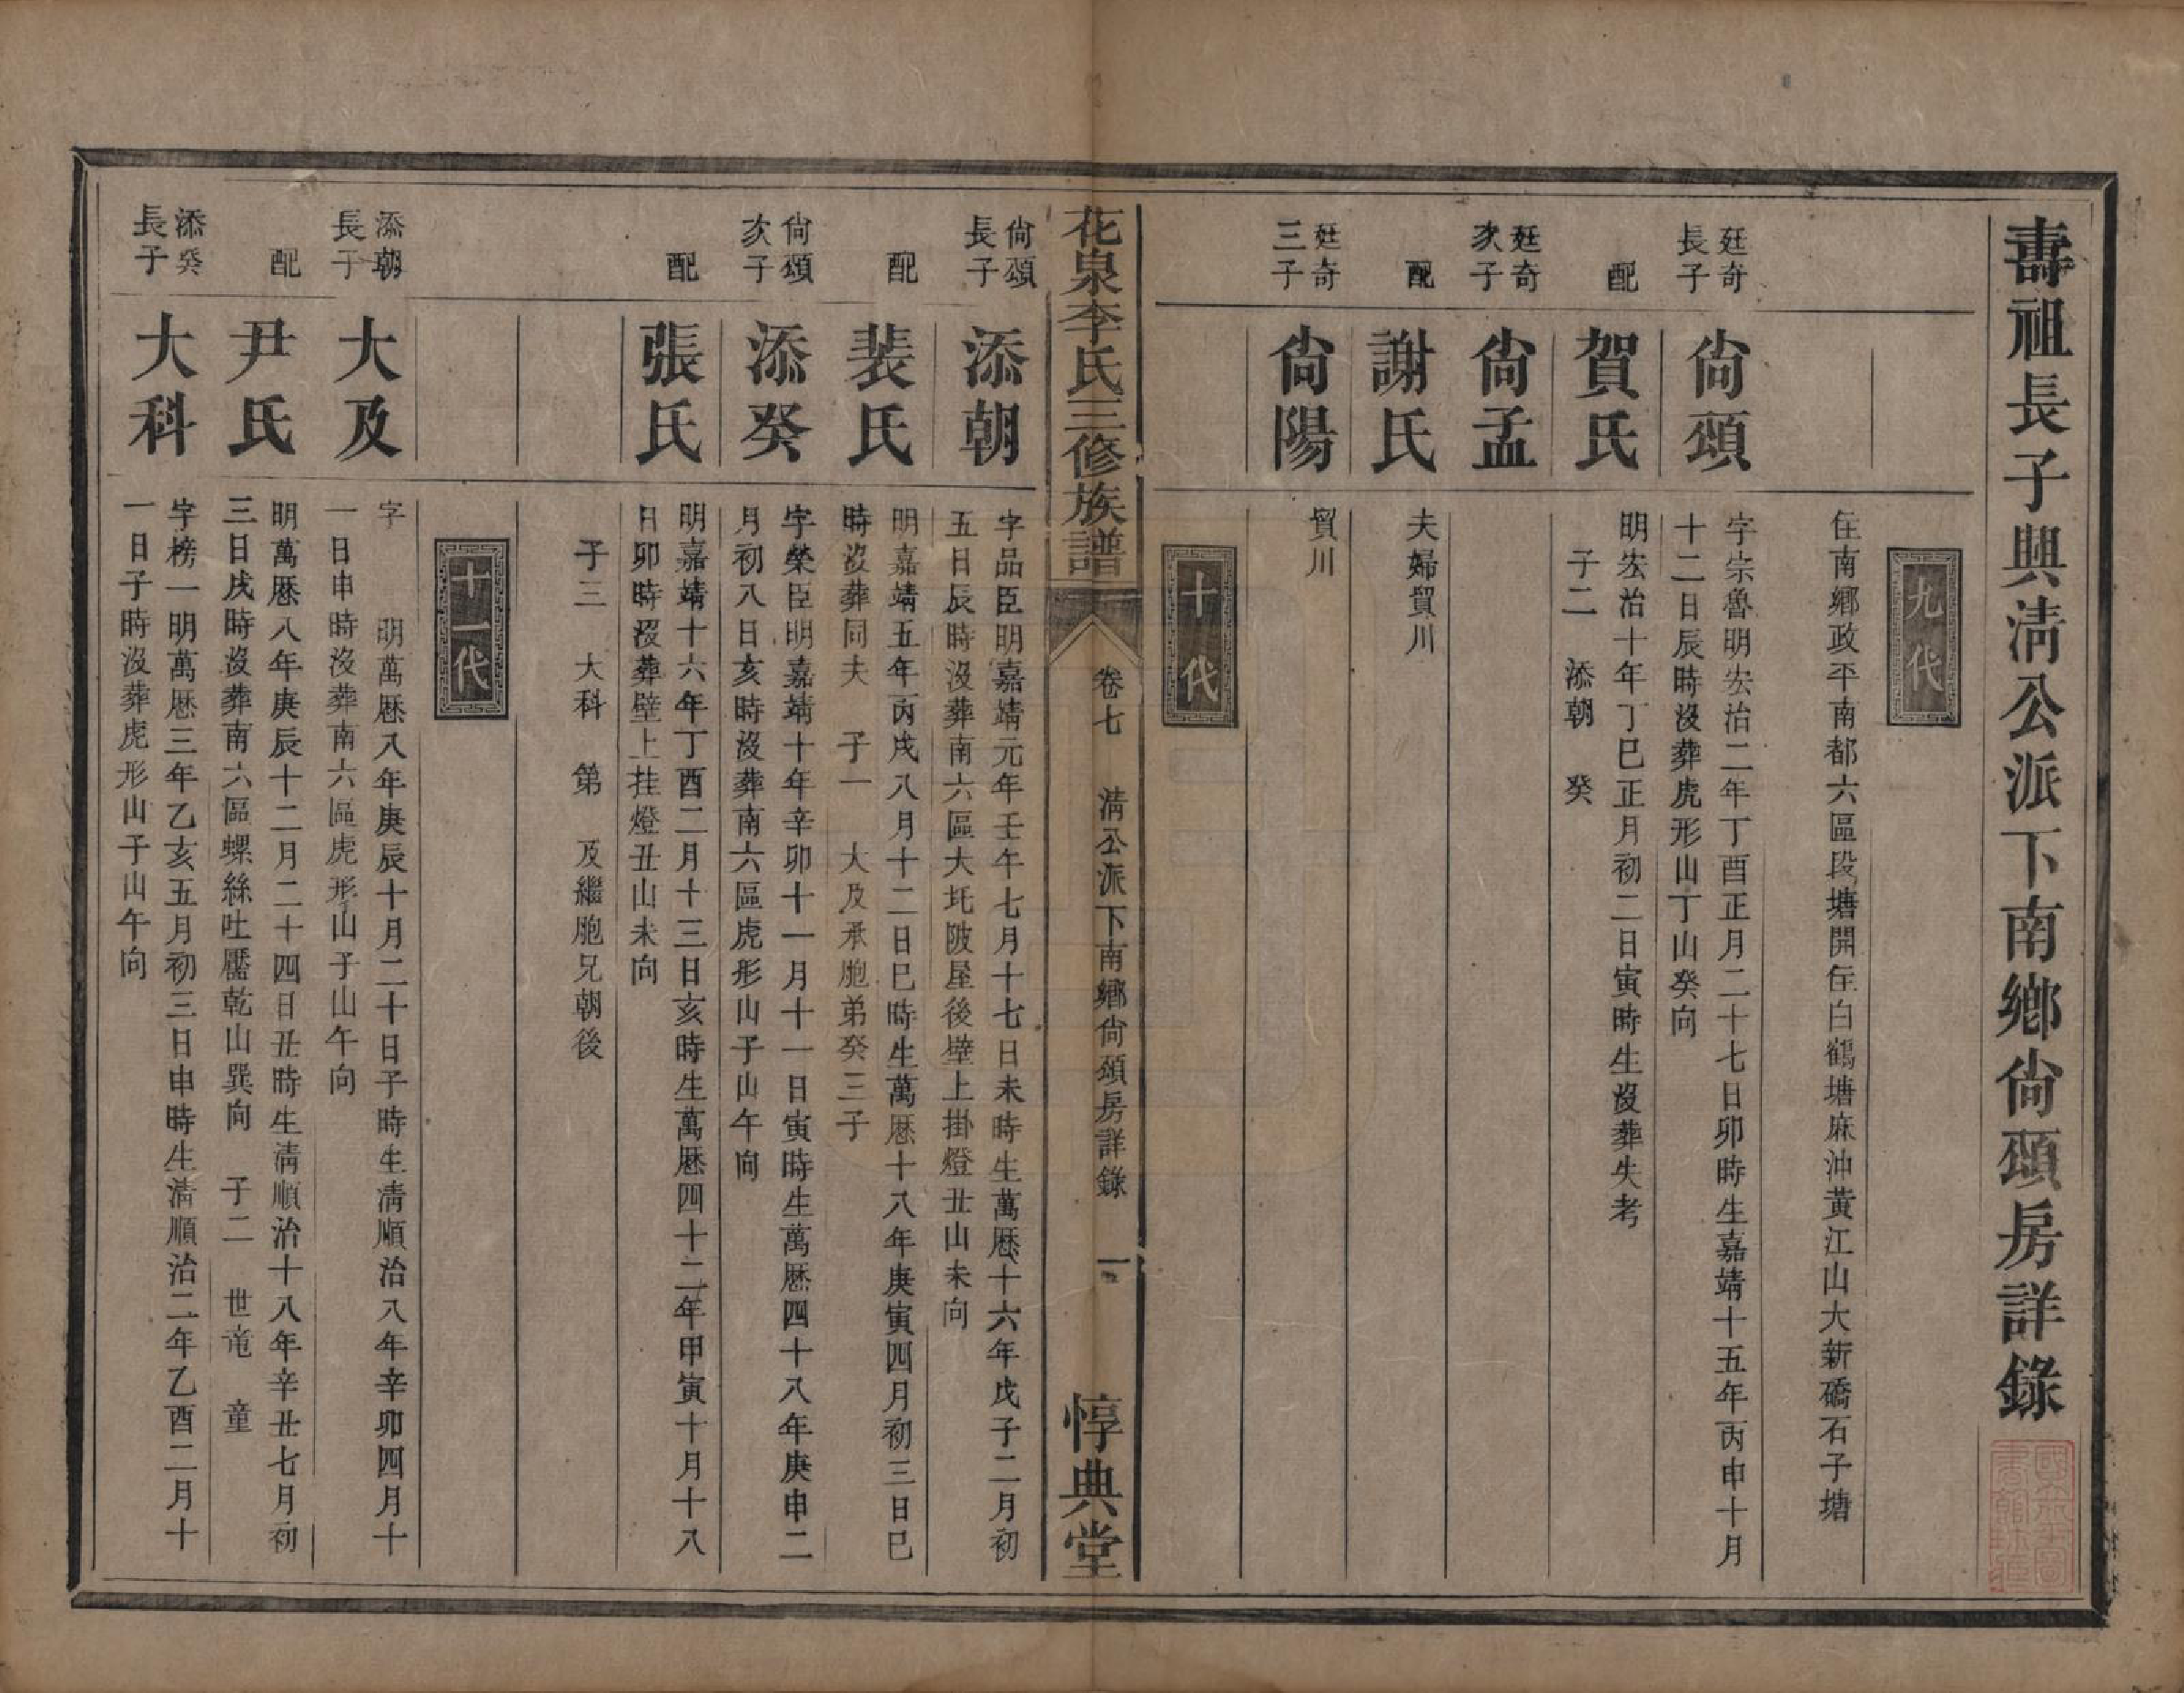 壽祖長子興淸公派下南鄉尙頌房詳錄
國立北平圖書館珍藏
九代
住南鄉政平南都六區段塘開住白鶴塘麻沖黃江山大新礄石子塘
廷奇長子
尙頌
字宗魯明宏治二年丁酉正月二十七日卯時生嘉靖十五年丙申十月
十二日辰時沒葬虎形山丁山癸向
配
賀氏
明宏治十年丁巳正月初二日寅時生沒葬失考
子二 添朝 癸
廷奇次子
尙孟
配
謝氏
夫婦貿川
廷奇三子
尙陽
貿川
十代
花泉李氏三修族譜
卷七 淸公派下南鄉尙頌房詳錄 一
惇典堂
尙頌長子
添朝
字品臣明嘉靖元年壬午七月十七日未時生萬厯十六年戊子二月初
五日辰時沒葬南六區大圫陂屋後壁上掛燈丑山未向
配
裴氏
明嘉靖五年丙戌八月十二日巳時生萬厯十八年庚寅四月初三日巳
時沒葬同夫 子一 大及承胞弟癸三子
尙頌次子
添癸
字榮臣明嘉靖十年辛卯十一月十一日寅時生萬厯四十八年庚申二
月初八日亥時沒葬南六區虎形山子山午向
配
張氏
明嘉靖十六年丁酉二月十三日亥時生萬厯四十二年甲寅十月十八
日卯時沒葬壁上挂燈丑山未向
子三 大科 第 及繼胞兄朝後
十一代
添朝長子
大及
字 明萬厯八年庚辰十月二十日子時生淸順治八年辛卯四月十
一日申時沒葬南六區虎形山子山午向
配
尹氏
明萬厯八年庚辰十二月二十四日丑時生淸順治十八年辛丑七月初
三日戌時沒葬南六區螺絲吐壓乾山巽向 子二 世竜 童
添癸長子
大科
字榜一明萬厯三年乙亥五月初三日申時生淸順治二年乙酉二月十
一日子時沒葬虎形山子山午向